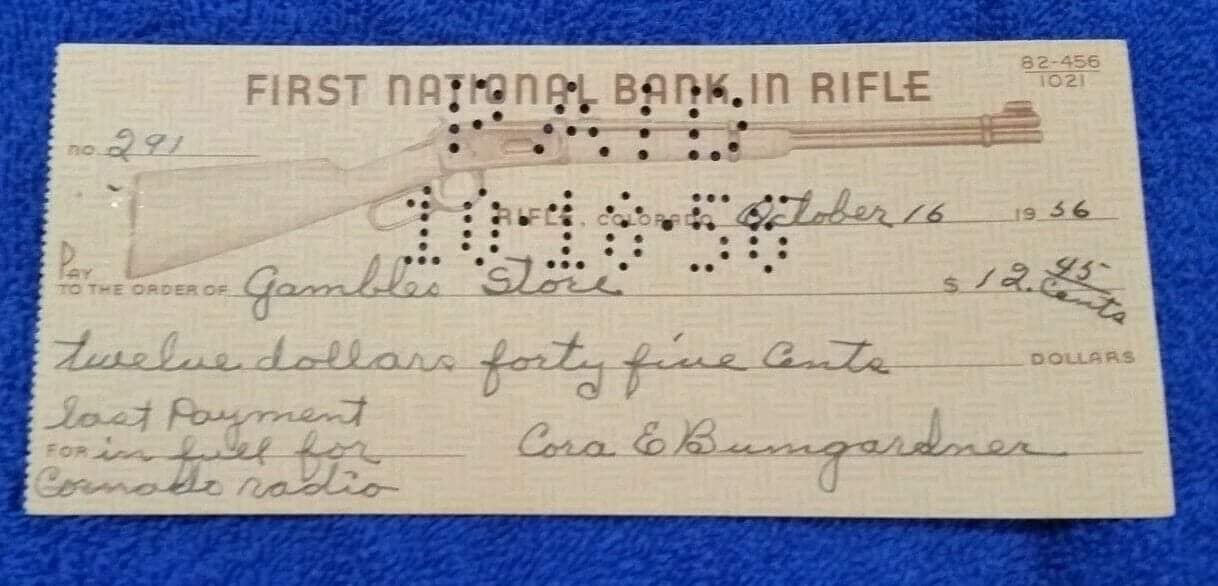 82-456
1021
FIRST NATIONAL BANK IN RIFLE
PAID
no. 291
10·16·56
RIFLE, COLORADO, October 16 1956
PAY
TO THE ORDER OF Gambles Store $ 12. 45 Cents
twelve dollars forty five Cents DOLLARS
last Payment
FOR in full for Cora E Bumgardner
Cornado radio